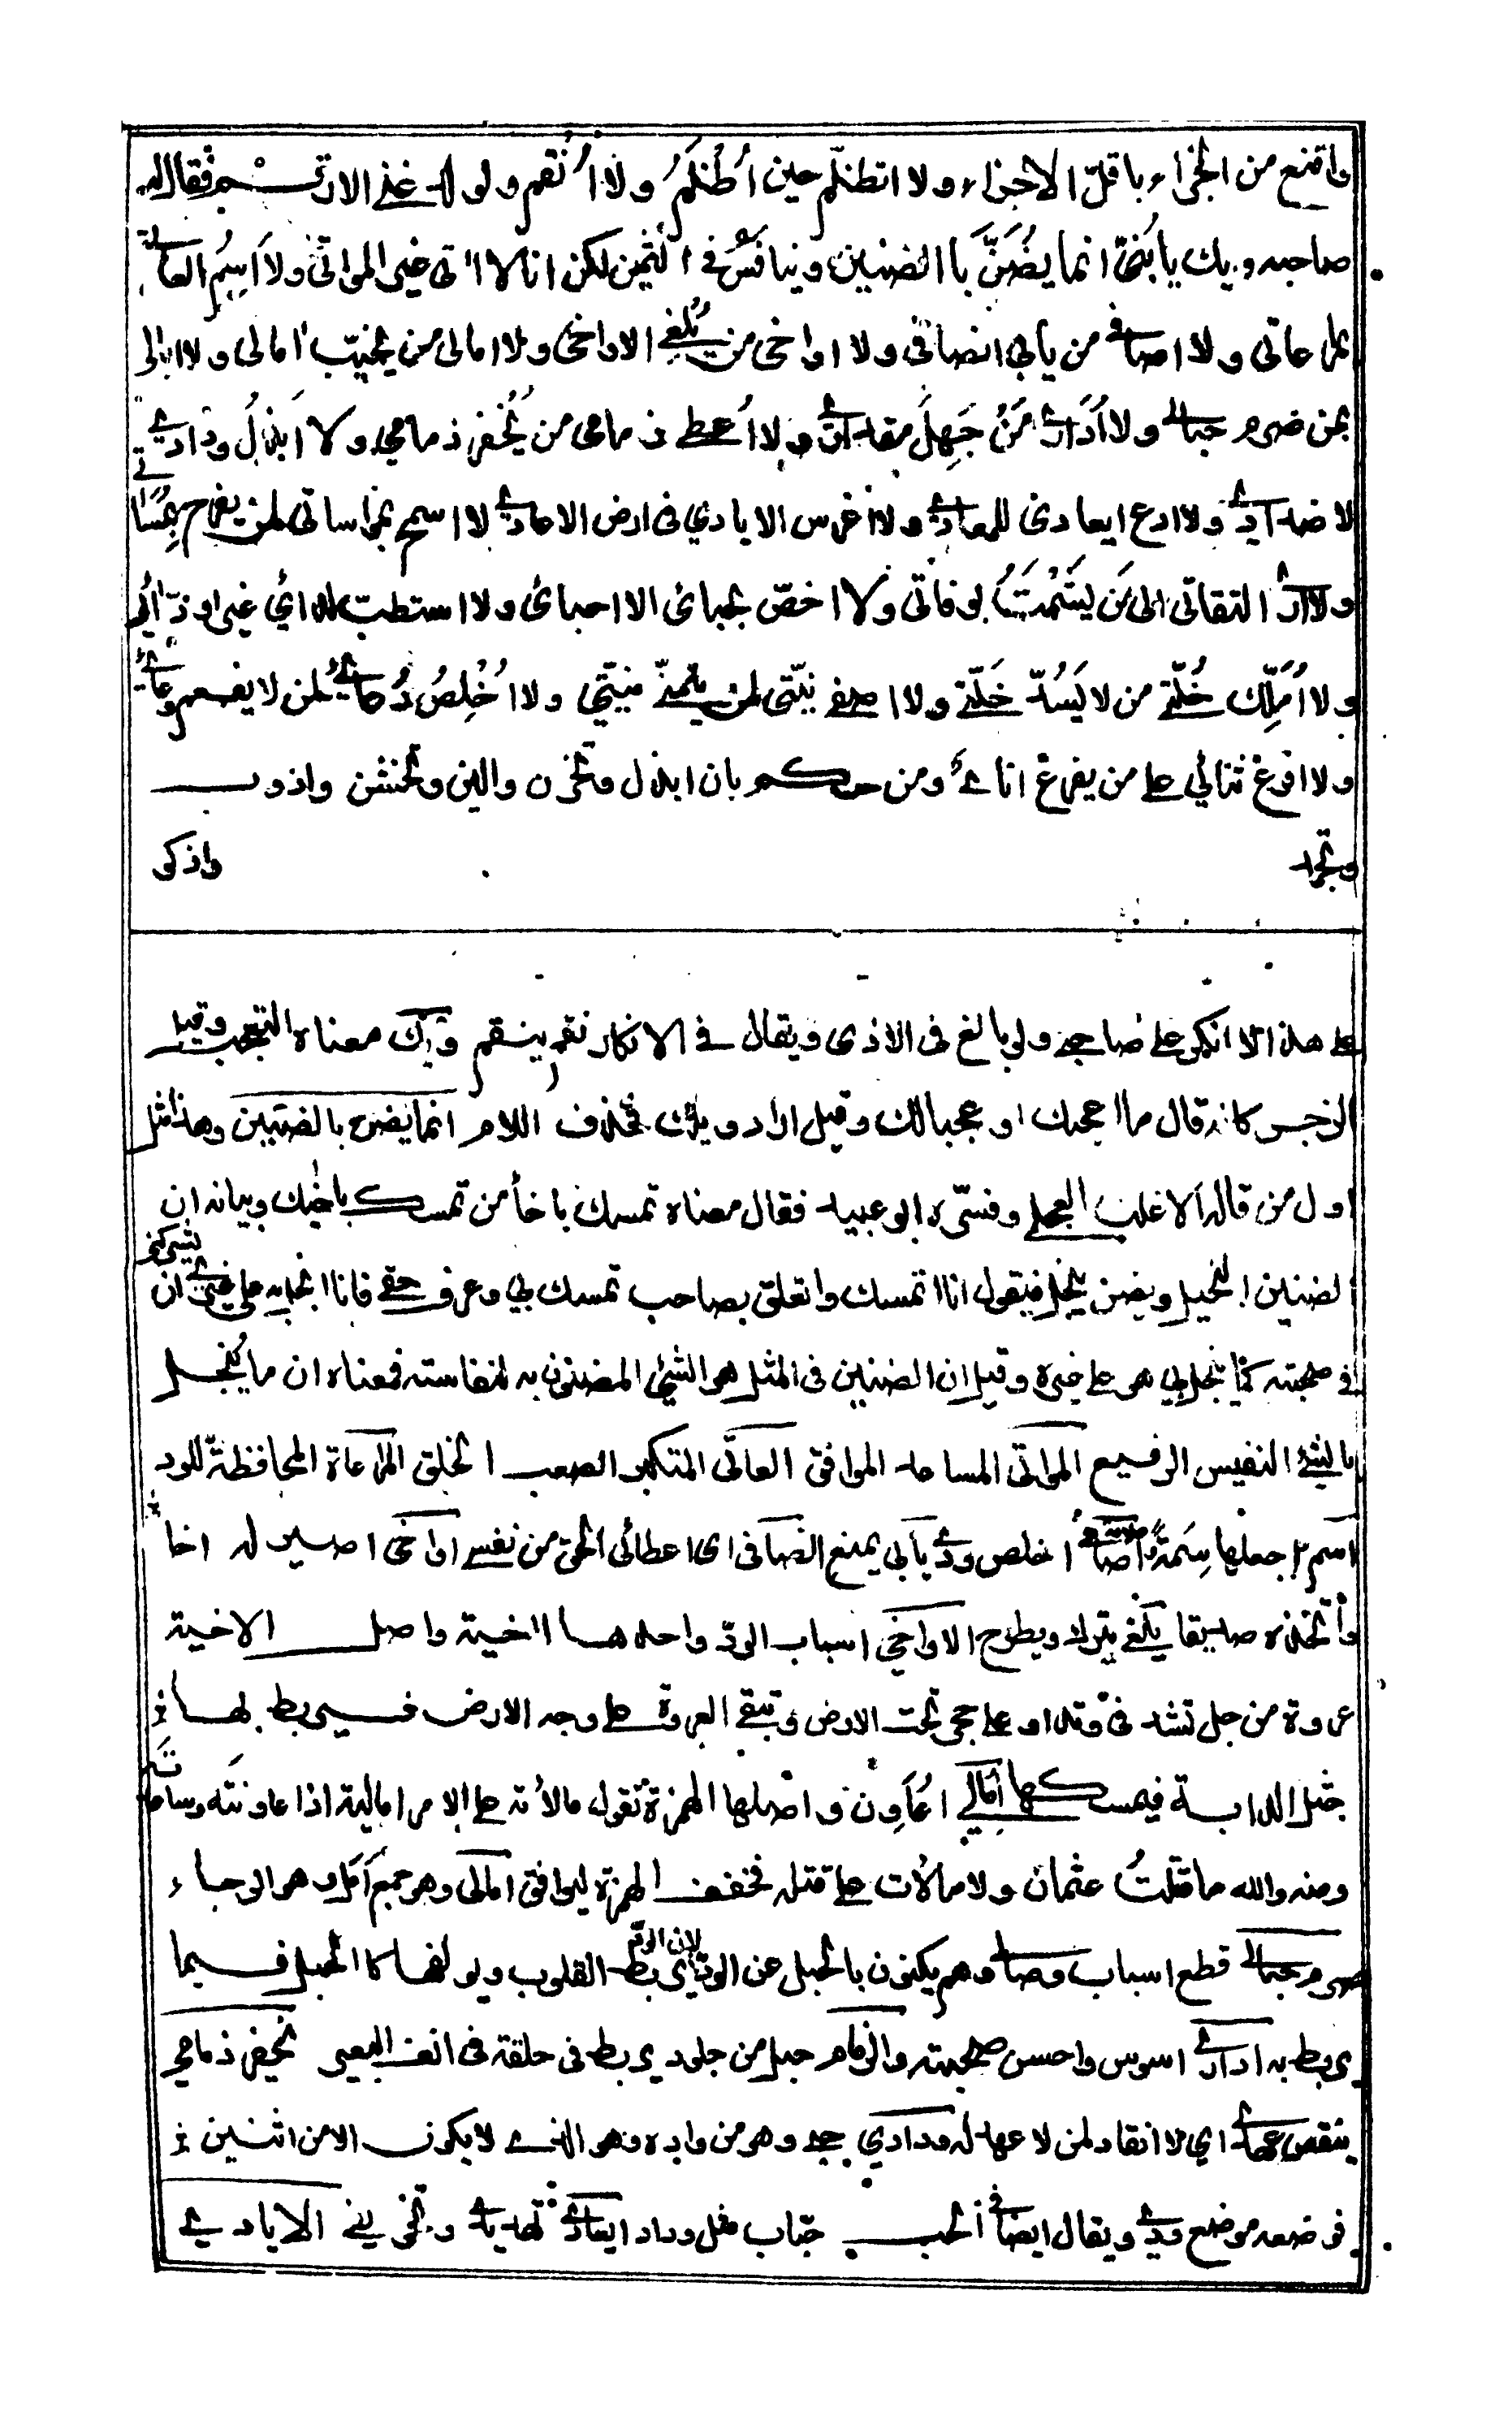 واقنع من الجزاء باقلّ الاجزاء ولا اتظلّم حين أُظلمُ ولا أنقم ولو لدغني الارقم فقال له
صاحبه ويك يا بُنيّ انما يُضَنّ با الضنين وينافَسُ في الثمين لكن انا لا اتى غير المواتي ولا اَسِمُ العاتي
بمراعاتي ولا اصافي من يابى انصافي ولا اواخي من يُلغي الاواخي ولا امالى من يخيّب امالى ولا ابالى
بمن صرم حبالي ولا اُدارى مَن جَهِلَ مقداري ولا اُعطى زمامى من يُخفر ذمامي ولا ابذلُ ودادي
لاضدادي ولا ادع ايعادى للمعادي ولا اغرس الايادي في ارض الاعادي لا اسمح بمواساتى لمن يفرح بمُسَااتي
ولا ارى التفاتى الى مَن يَشْمَتُ بوفاتى ولا اخصّ بحبائى الا احبائى ولا استطبّ لدائي غير اودّائي
ولا اُمَلِّك خُلّتي من لا يَسُدّ خَلّتي ولا اصفي نيّتى لمن يتمنّى منيّتي ولا اُخْلِصُ دُعائي لمن لا يفعم وِعائي
ولا افرغ ثنائي على من يفرغ انائي ومن حكم بان ابذل وتخزن والين وتخشن واذوب
وتجمد واذكى
على هذا لا انكر على صاحبي ولو بالغ في الاذى ويقال في الانكار نقم ينقم ويك معناه التعجب وقيل
الزجر كانه قال ما اعجبك او عجبا لك وقيل اراد ويلك فحذف اللام انما يضن بالضنين وهذا مثل
اول من قاله الاغلب العجلي وفسّره ابو عبيد فقال معناه تمسك باخاً من تمسك باخيك وبيانه ان
الضنين البخيل ويضن يبخل فيقول انا اتمسك واتعلق بصاحب تمسك بي وعرف حقي فانا ابخل به على غيري ان يشركنى
في صحبته كما يبخل بي هو على غيره وقيل ان الضنين في المثل هو الشيئ المضنون به لنفاسته فمعناه ان ما يُبخل
بالشئ النفيس الرفيع المواتى المساعد الموافق العاتى المتكبر الصعب الخلق المراعاة المحافظة للود
اسم اجعلها سِمَةً اصافي اخلص ودي يابى يمنع انصافى اى اعطائى الحق من نفسي اواخى اصير له اخا
واتخذه صديقا يلغي يترك ويطرح الاواخي اسباب الودّ واحدها اخية واصل الاخية
عروة من حبل تشد في وتد او على حجر تحت الارض وتبقى العروة على وجه الارض فيربط بها
حبل الدابة فيمسكها اُمالي اُعاوِن واصلها الهمزة تقول مالأته على الامر امالية اذا عاونته وساعدته
ومنه والله ما قتلتُ عثمان ولا مالأت على قتله فخفف الهمزة ليوافق امالى وهو جمع اَمَل وهو الرجاء
صرم حبالي قطع اسباب وصالي وهم يكنون بالحبل عن الودّ لان الودّ يربط القلوب ويولفها كالحبل فيما
يربط به اداري اسوس واحسن صحبته والزمام حبل من جلود يربط في حلقة في انف البعير يخفر ذمامي
ينقص عهدي اي لا انقاد لمن لا عهد له ودادي حبي وهو من وادده وهو الذي لا يكون الا من اثنين
فوضعه موضع ودي ويقال ايضا في الحب حبّاب مثل وداد ايعادي تهديدي وتخويفي الايادي